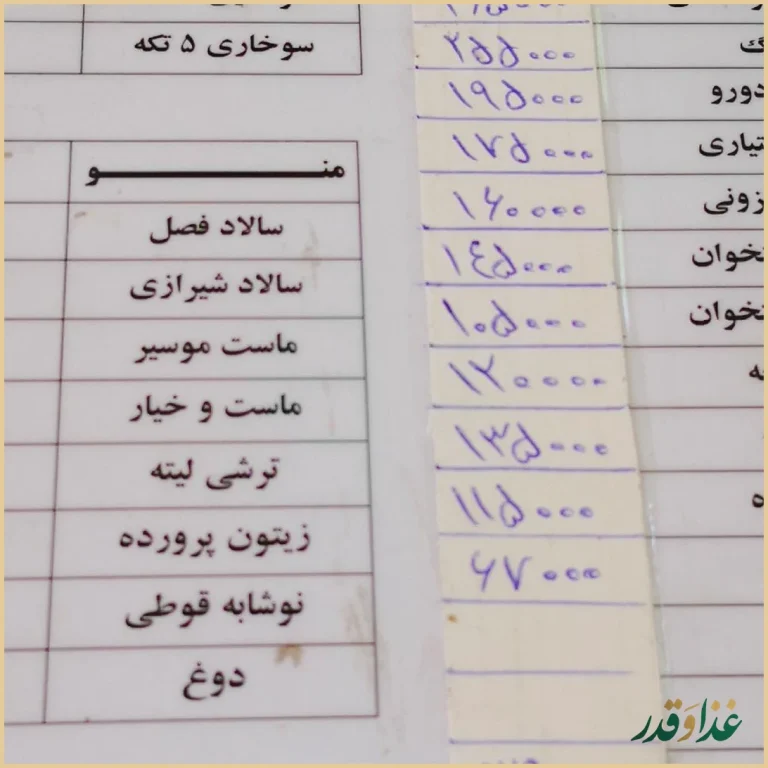 دورو ۱۹۵۰۰۰
تیاری ۱۷۵۰۰۰
زونی ۱۶۰۰۰۰
نخوان ۱۴۵۰۰۰
نخوان ۱۰۵۰۰۰
ه ۱۲۰۰۰۰
۱۳۵۰۰۰
ه ۱۱۵۰۰۰
۶۷۰۰۰
سوخاری ۵ تکه
منو
سالاد فصل
سالاد شیرازی
ماست موسیر
ماست و خیار
ترشی لیته
زیتون پرورده
نوشابه قوطی
دوغ
غذا و قدر